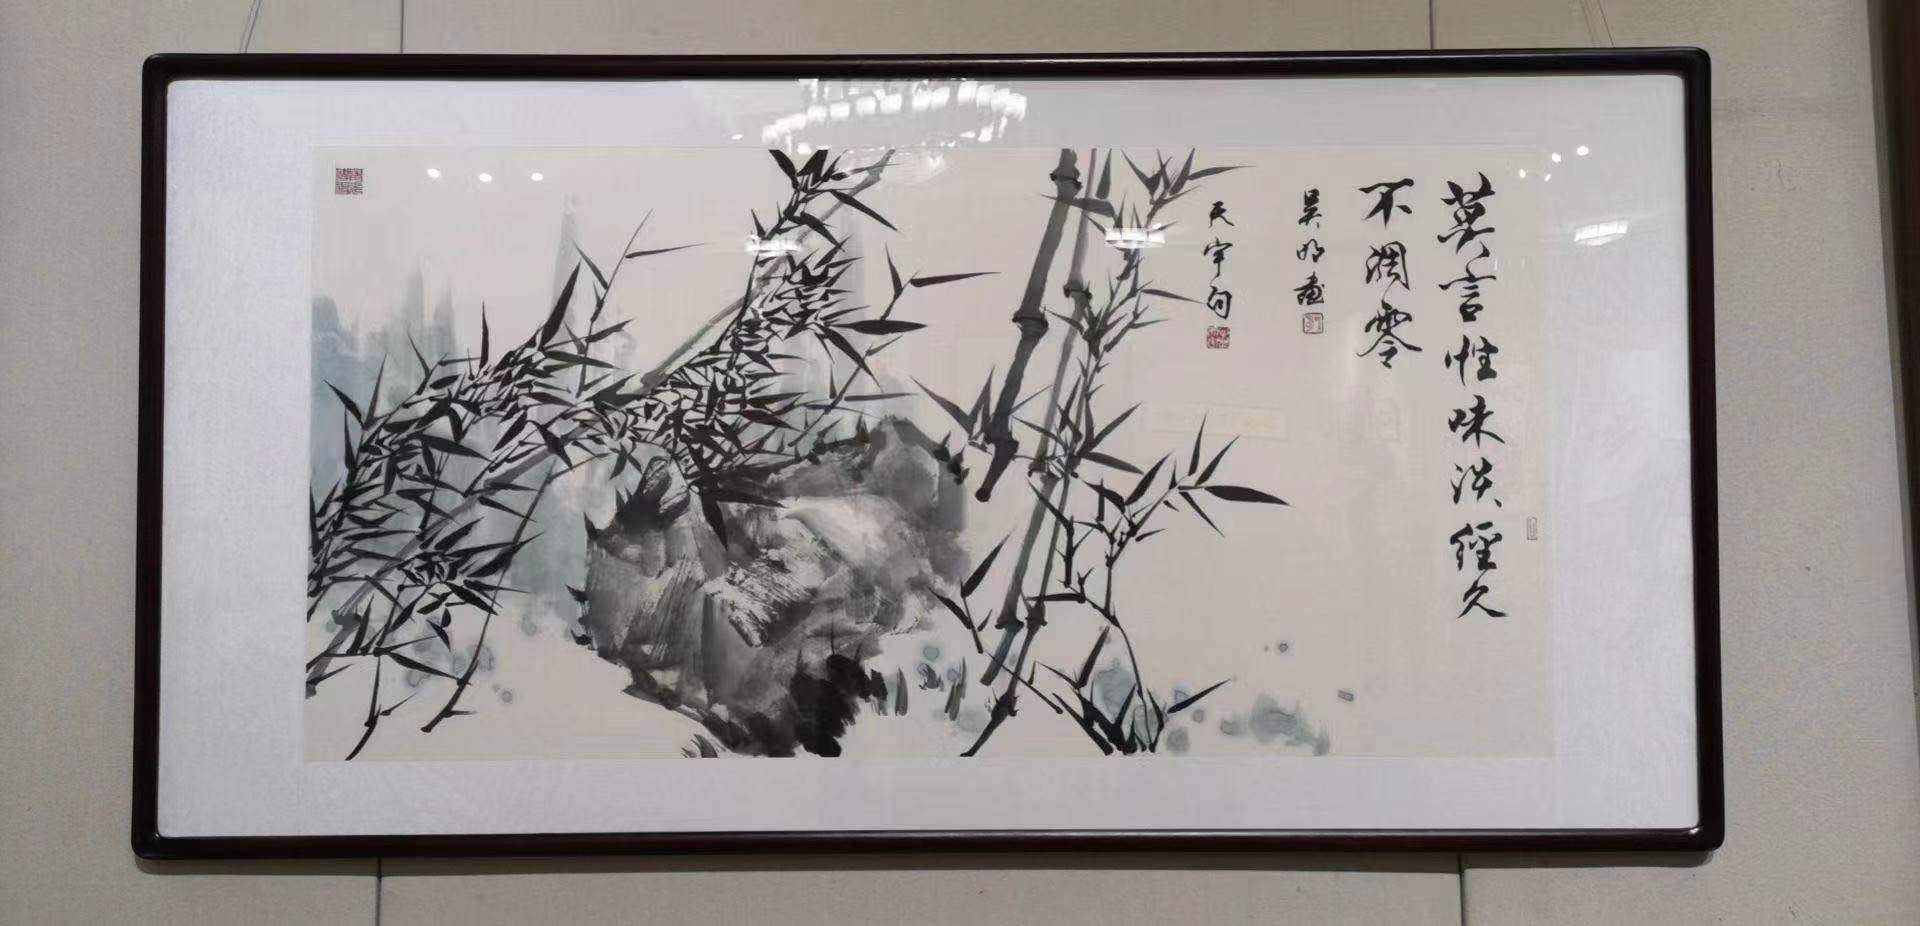 莫言性味淡經久
不凋零
吴明畫
天宇句